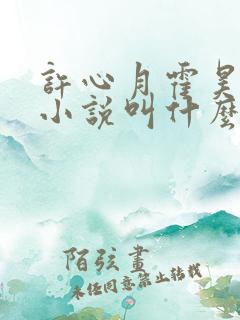 許心月霍昊
小說叫什麼
陌弦畫
未经同意禁止转载